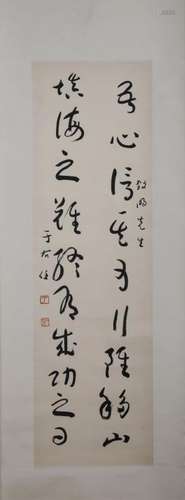 吾心信其可行雖移山
先生
填海之難終有成功之日
于右任